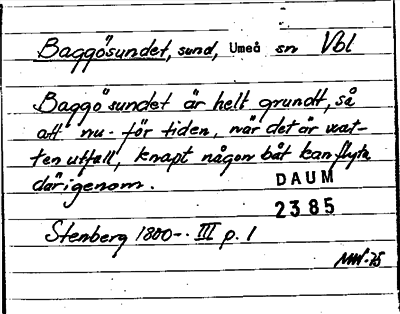 Baggösundet, sund, Umeå sn Vbl
Baggösundet är helt grundt, så
att nu-för tiden, när det är vat-
ten utfall, knapt någon båt kan flyta
därigenom.
DAUM
2385
Stenberg 1800-. III p. 1
MW-75